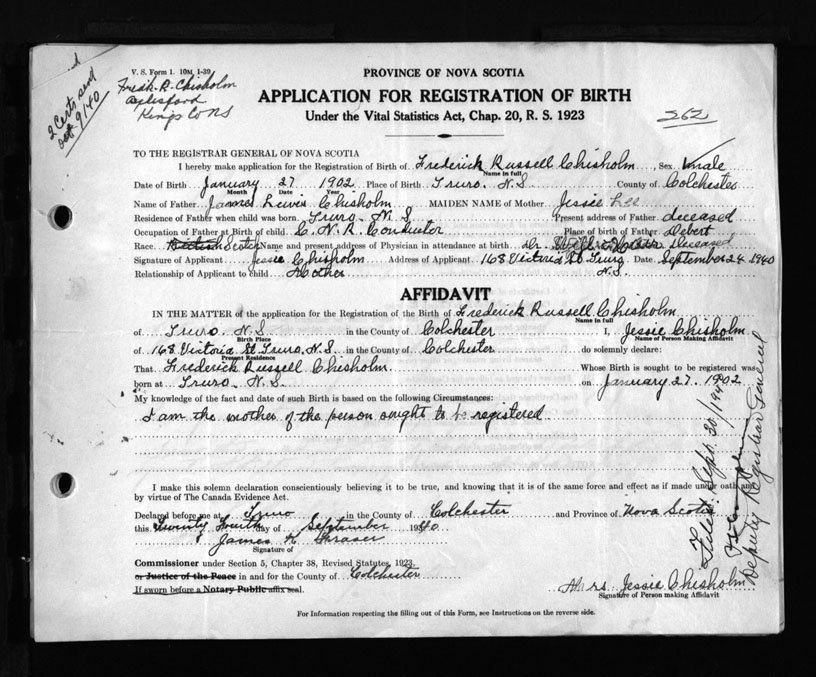 V. S. Form 1. 10M, 1-39
Fredk. R. Chisholm
Aylesford
Kings Co NS
2 Certs send
Oct 9/40
PROVINCE OF NOVA SCOTIA
APPLICATION FOR REGISTRATION OF BIRTH
Under the Vital Statistics Act, Chap. 20, R. S. 1923
262
TO THE REGISTRAR GENERAL OF NOVA SCOTIA
I hereby make application for the Registration of Birth of Frederick Russell Chisholm, Sex male
Name in full
Date of Birth January 27 1902 Place of Birth Truro. N.S County of Colchester
Month Date Year
Name of Father James Lewis Chisholm MAIDEN NAME of Mother Jessie Lee
Residence of Father when child was born. Truro. N.S. Present address of Father deceased
Occupation of Father at Birth of child C. N. R. Conductor Place of birth of Father Debert
Race. British Scotch Name and present address of Physician in attendance at birth Dr. Deceased
Signature of Applicant Jessie Chisholm Address of Applicant 168 Victoria St. Truro Date September 24 1940
Relationship of Applicant to child Mother N.S.
AFFIDAVIT
IN THE MATTER of the application for the Registration of the Birth of Frederick Russell Chisholm
Name in full
of Truro N.S in the County of Colchester I, Jessie Chisholm
Birth Place Name of Person Making Affidavit
of 168 Victoria St Truro. N.S. in the County of Colchester do solemnly declare:
Present Residence
That Frederick Russell Chisholm. Whose Birth is sought to be registered was
born at Truro. N.S. on January 27. 1902
My knowledge of the fact and date of such Birth is based on the following Circumstances:
I am the mother of the person ought to be registered
I make this solemn declaration conscientiously believing it to be true, and knowing that it is of the same force and effect as if made under oath and
by virtue of The Canada Evidence Act.
Declared before me at Truro in the County of Colchester and Province of Nova Scotia
this Twenty Fourth day of September 1940
James K Fraser
Signature of
Commissioner under Section 5, Chapter 38, Revised Statutes, 1923.
or Justice of the Peace in and for the County of Colchester
If sworn before a Notary Public affix seal.
Mrs. Jessie Chisholm
Signature of Person making Affidavit
For Information respecting the filling out of this Form, see Instructions on the reverse side.
Filed: Sept. 30/1940
Deputy Registrar General